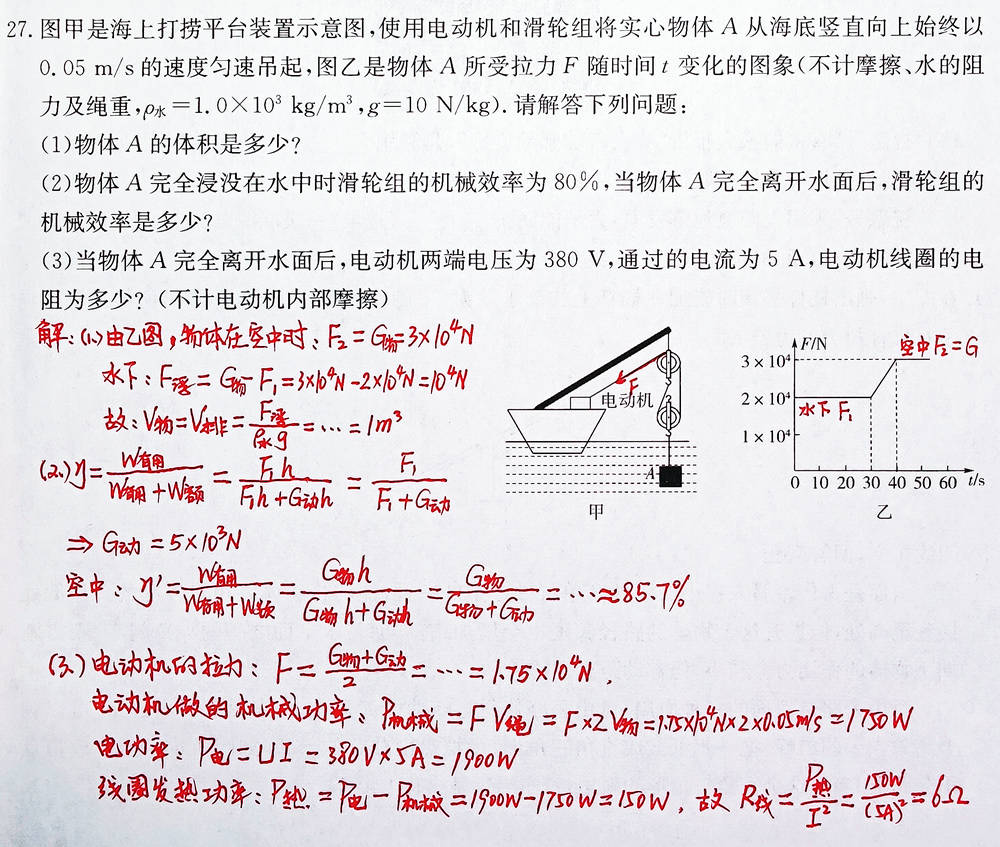 27. 图甲是海上打捞平台装置示意图,使用电动机和滑轮组将实心物体 A 从海底竖直向上始终以
0.05 m/s 的速度匀速吊起,图乙是物体 A 所受拉力 F 随时间 t 变化的图象(不计摩擦、水的阻
力及绳重,ρ水=1.0×10³ kg/m³,g=10 N/kg). 请解答下列问题:
(1)物体 A 的体积是多少?
(2)物体 A 完全浸没在水中时滑轮组的机械效率为 80%,当物体 A 完全离开水面后,滑轮组的
机械效率是多少?
(3)当物体 A 完全离开水面后,电动机两端电压为 380 V,通过的电流为 5 A,电动机线圈的电
阻为多少? (不计电动机内部摩擦)
解:(1.)由乙图,物体在空中时:F₂=G物=3×10⁴N
水下:F浮=G物-F₁=3×10⁴N-2×10⁴N=10⁴N
故:V物=V排=F浮/ρ水g=…=1m³
(2.)η=W有用/W有用+W额=F₁h/F₁h+G动h=F₁/F₁+G动
⇒ G动=5×10³N
空中:η'=W有用/W有用+W额=G物h/G物h+G动h=G物/G物+G动=…≈85.7%
(3.)电动机的拉力:F=G物+G动/2=…=1.75×10⁴N,
电动机做的机械功率:P机械=FV绳=F×2V物=1.75×10⁴N×2×0.05m/s=1750W
电功率:P电=UI=380V×5A=1900W
线圈发热功率:P热=P电-P机械=1900W-1750W=150W,故 R线=P热/I²=150W/(5A)²=6Ω
F
电动机
A
甲
F/N
空中F₂=G
3×10⁴
2×10⁴
水下 F₁
1×10⁴
0 10 20 30 40 50 60 t/s
乙